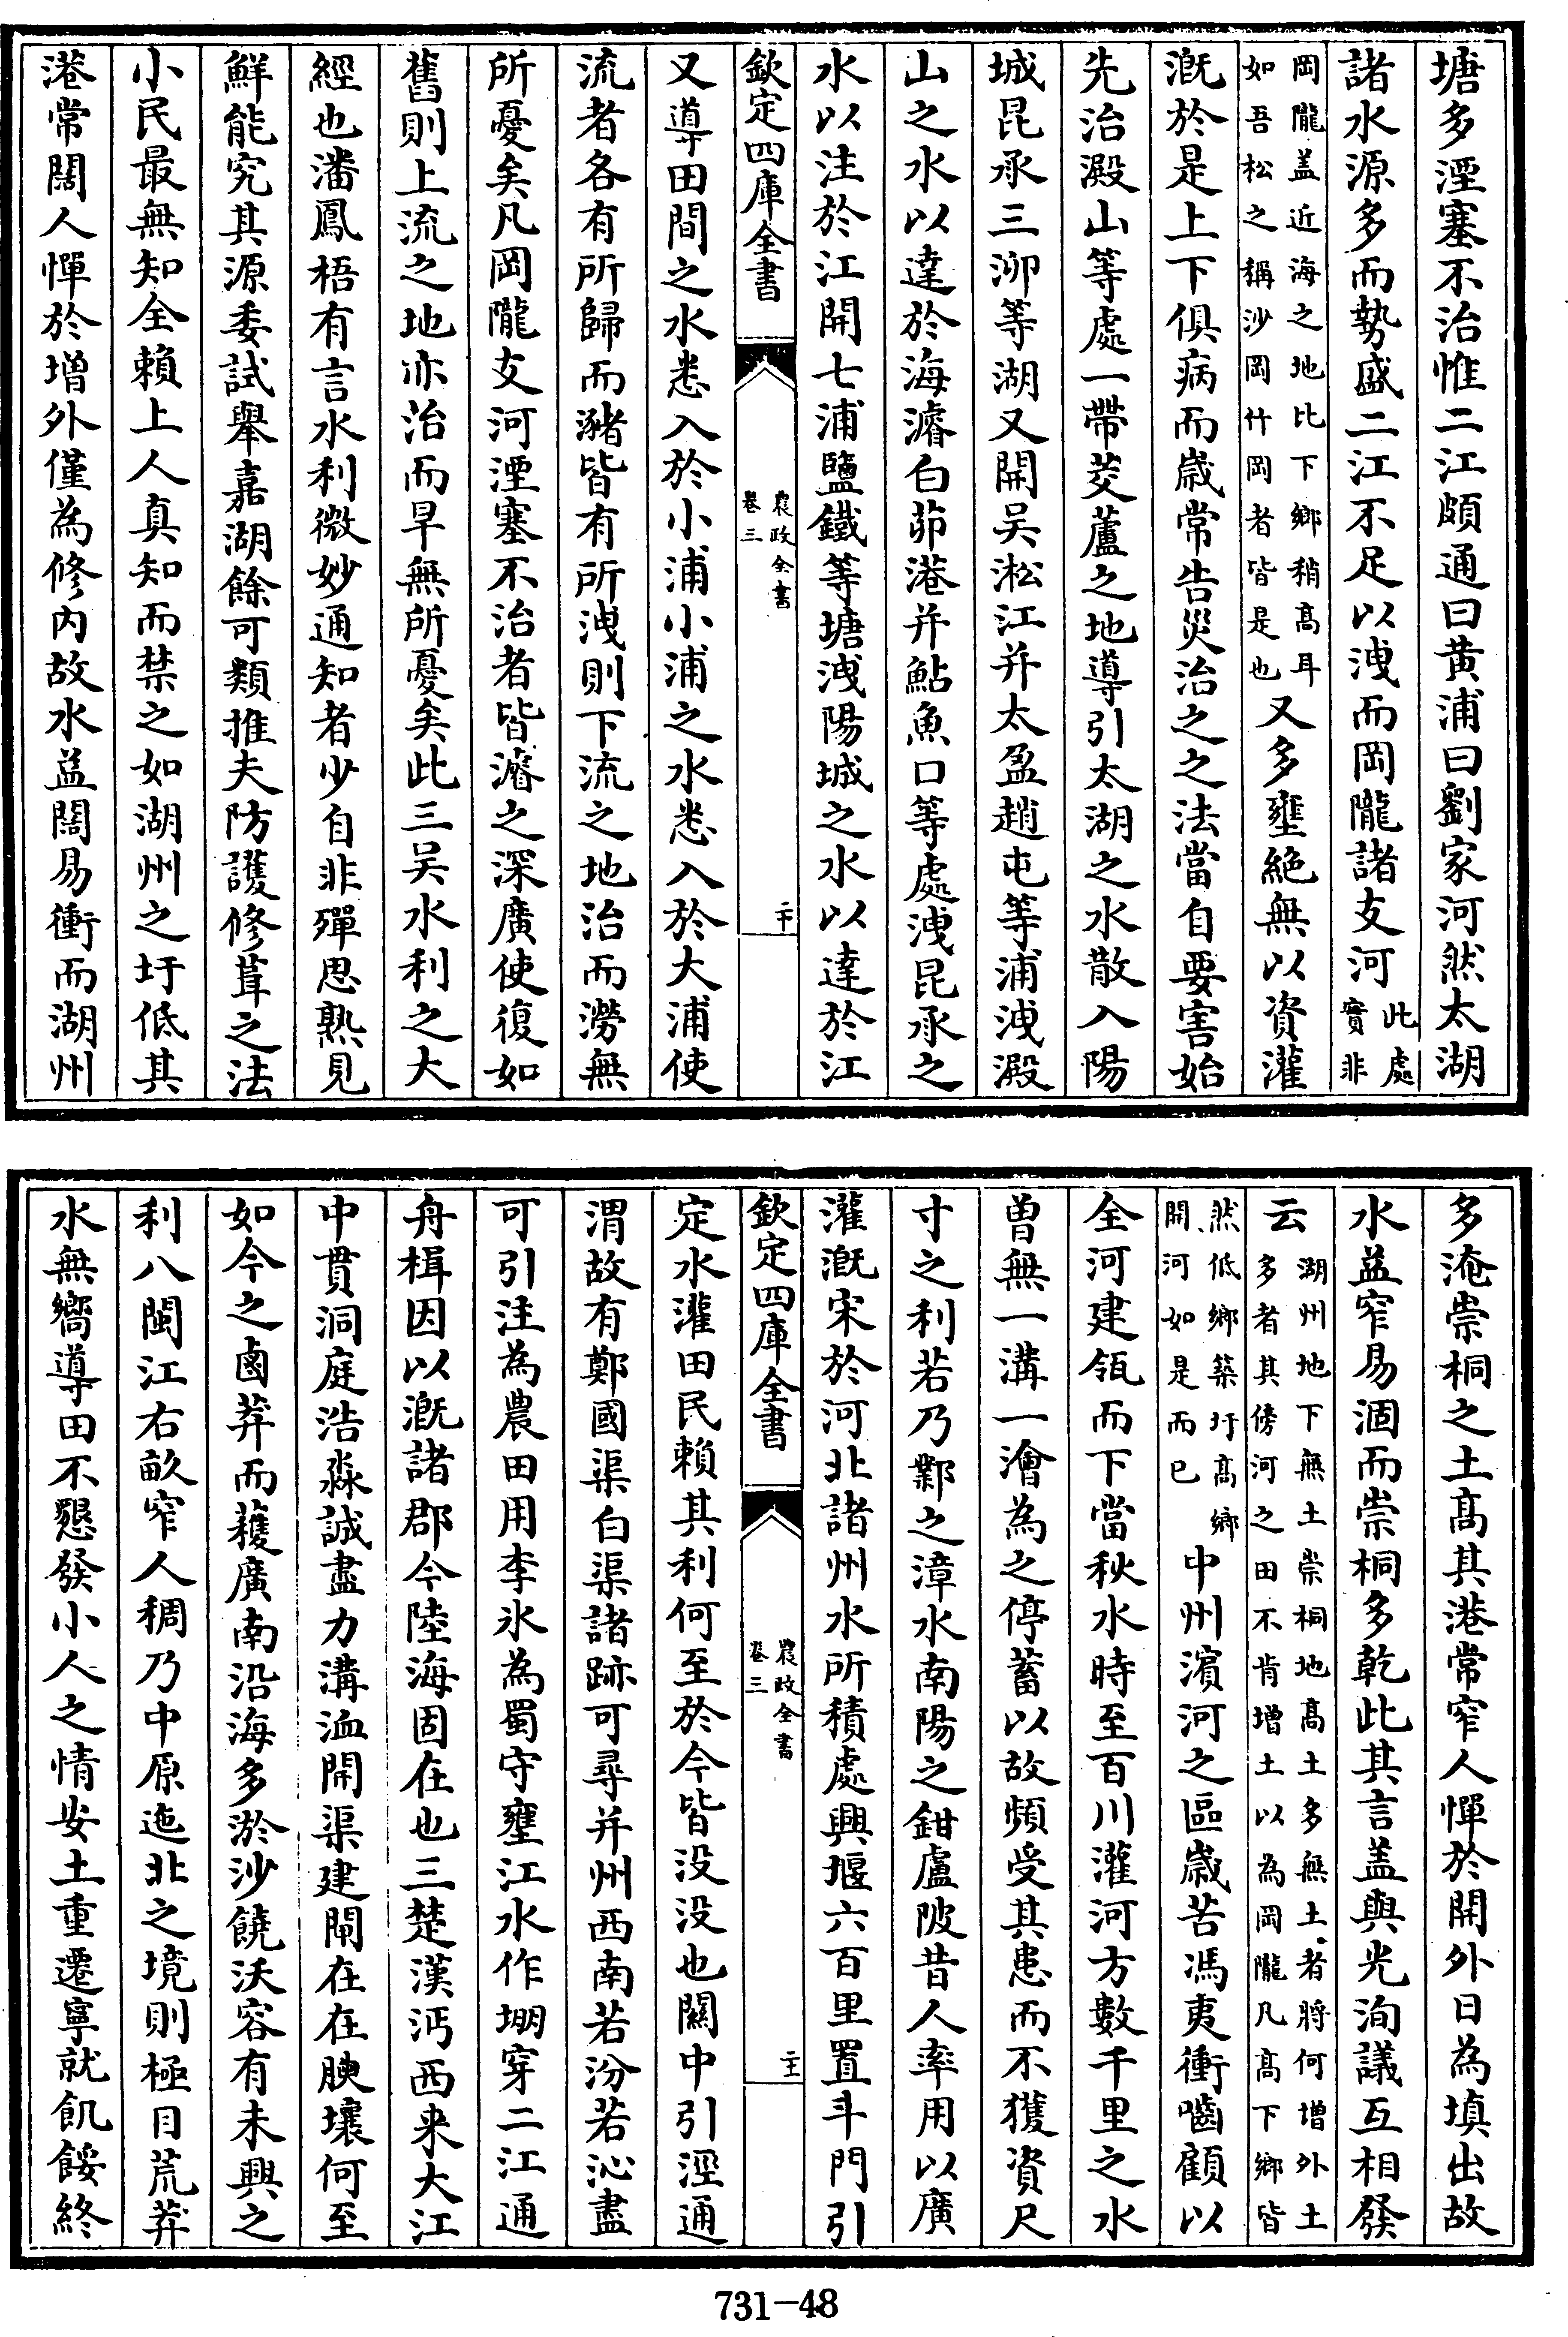 塘多湮塞不治惟二江頗通曰黄浦曰劉家河然太湖
諸水源多而勢盛二江不足以洩而岡隴諸支河此處實非
岡隴盖近海之地比下鄉稍髙耳如吾松之稱沙岡竹岡者皆是也又多壅絶無以資灌
溉於是上下俱病而嵗常告災治之之法當自要害始
先治澱山等處一帶茭蘆之地導引太湖之水散入陽
城昆承三泖等湖又開吳淞江并太盈趙屯等浦洩澱
山之水以達於海濬白茆港并鮎魚口等處洩昆承之
水以注於江開七浦鹽鐵等塘洩陽城之水以達於江
欽定四庫全書
農政全書
卷三
二十
又導田間之水悉入於小浦小浦之水悉入於大浦使
流者各有所歸而瀦皆有所洩則下流之地治而澇無
所憂矣凡岡隴支河湮塞不治者皆濬之深廣使復如
舊則上流之地亦治而旱無所憂矣此三吴水利之大
經也潘鳳梧有言水利微妙通知者少自非殫思熟見
鮮能究其源委試舉嘉湖餘可類推夫防護修葺之法
小民最無知全賴上人真知而禁之如湖州之圩低其
港常闊人憚於增外僅為修内故水益闊易衝而湖州
多淹崇桐之土髙其港常窄人憚於開外日為填出故
水益窄易涸而崇桐多乾此其言盖與光洵議互相發
云湖州地下無土崇桐地髙土多無土者將何增外土多者其傍河之田不肯增土以為岡隴凡髙下鄉皆
然低鄉築圩髙鄉開河如是而已中州濱河之區嵗苦馮夷衝嚙顧以
全河建瓴而下當秋水時至百川灌河方數千里之水
曽無一溝一澮為之停蓄以故頻受其患而不獲資尺
寸之利若乃鄴之漳水南陽之鉗盧陂昔人率用以廣
灌溉宋於河北諸州水所積處興堰六百里置斗門引
欽定四庫全書
農政全書
卷三
二十一
定水灌田民賴其利何至於今皆没没也闗中引涇通
渭故有鄭國渠白渠諸跡可尋并州西南若汾若沁盡
可引注為農田用李氷為蜀守壅江水作堋穿二江通
舟楫因以溉諸郡今陸海固在也三楚漢沔西来大江
中貫洞庭浩淼誠盡力溝洫開渠建閘在在腴壤何至
如今之鹵莽而穫廣南沿海多淤沙饒沃容有未興之
利八閩江右畝窄人稠乃中原迤北之境則極目荒莽
水無嚮導田不懇發小人之情安土重遷寧就飢餒終
731—48